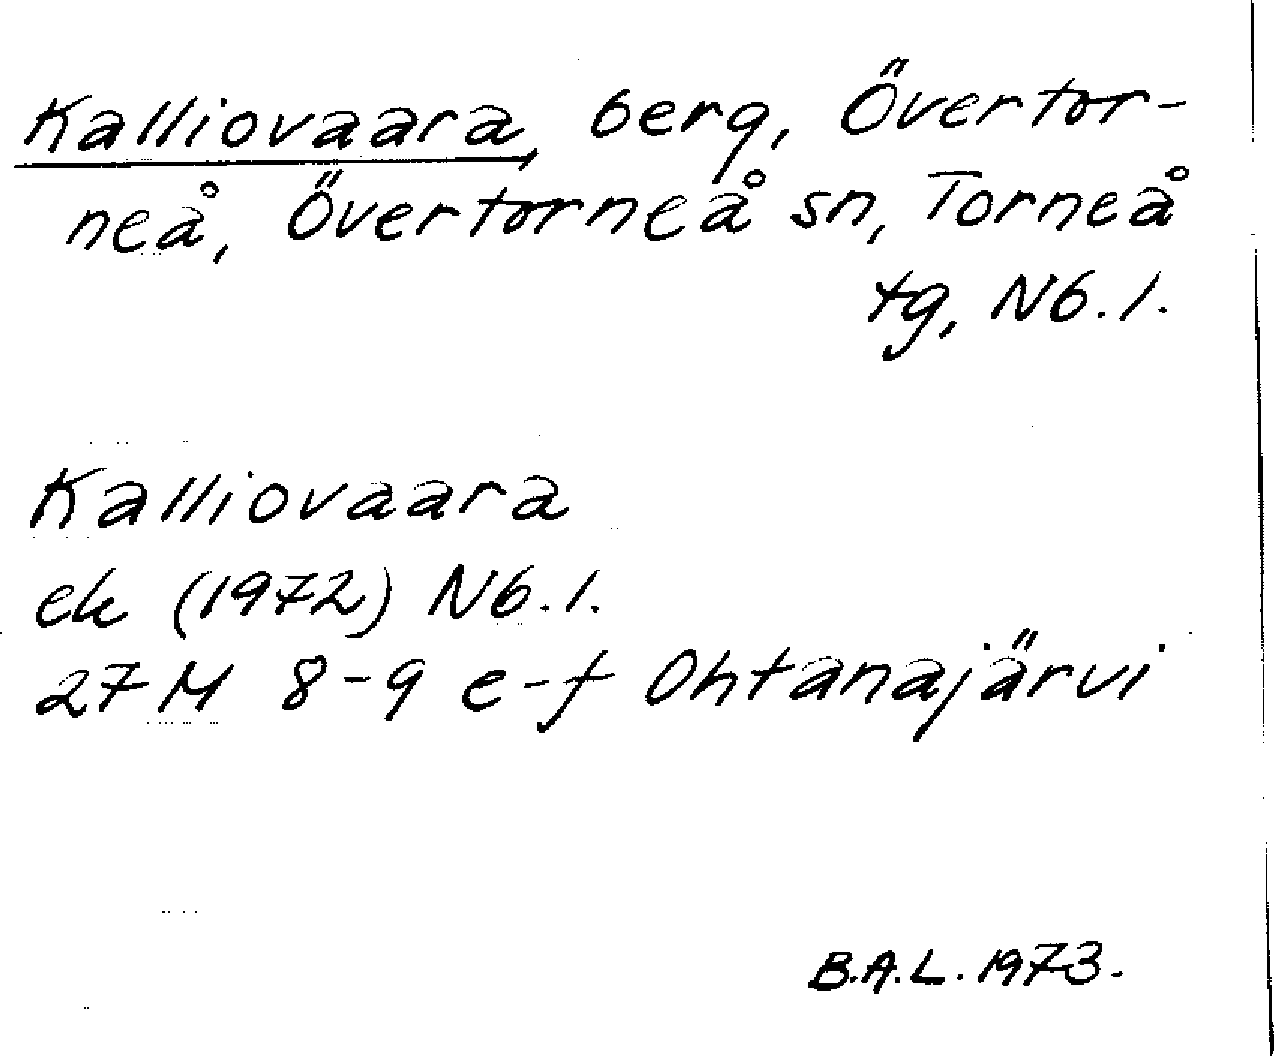 Kalliovaara, berg, Övertor-
neå, Övertorneå sn, Torneå
tg, Nb. l.
Kalliovaara
ek (1972) Nb. l.
27M 8-9 e-f Ohtanajärvi
B.A.L. 1973.